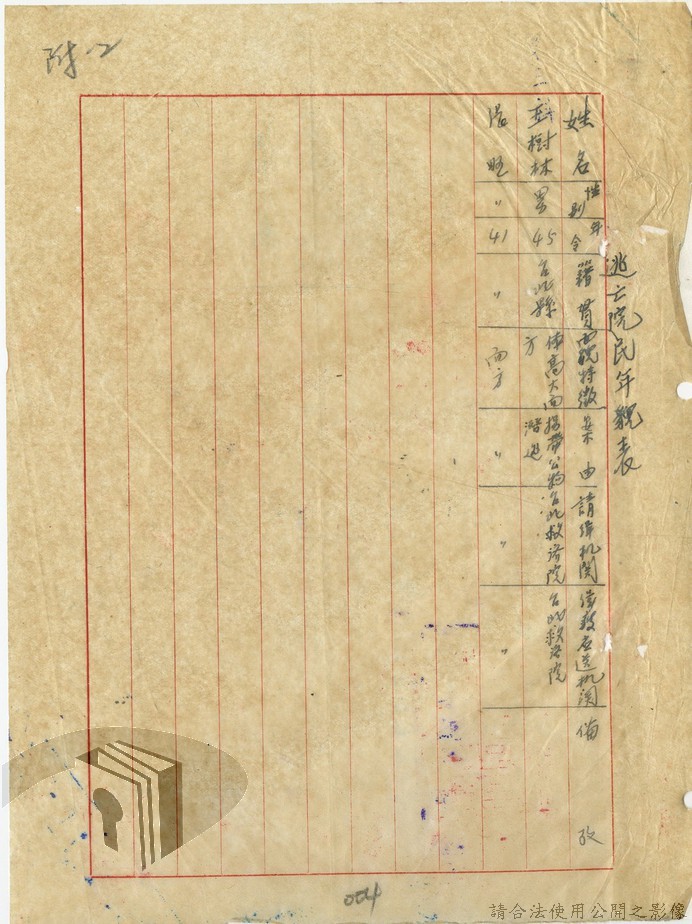 附-2
逃亡院民年貌表
姓名 性別 年令 籍貫 面貌特徵 案由 請緝机関 緝獲应送机関 備攷
樹林 男 45 台北縣 体高大面方 攜帶公物潛逃 台北救済院 台北救済院
〃 41 〃 面方 〃 〃 〃
004
請合法使用公開之影像